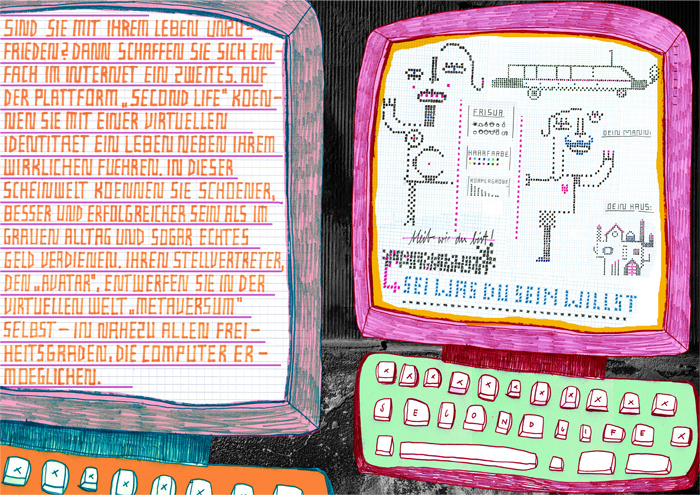 SIND SIE MIT IHREM LEBEN UNZU-
FRIEDEN? DANN SCHAFFEN SIE SICH EIN-
FACH IM INTERNET EIN ZWEITES. AUF
DER PLATTFORM „SECOND LIFE" KOEN-
NEN SIE MIT EINER VIRTUELLEN
IDENTITAET EIN LEBEN NEBEN IHREM
WIRKLICHEN FUEHREN. IN DIESER
SCHEINWELT KOENNEN SIE SCHOENER,
BESSER UND ERFOLGREICHER SEIN ALS IM
GRAUEN ALLTAG UND SOGAR ECHTES
GELD VERDIENEN. IHREN STELLVERTRETER,
DEN „AVATAR", ENTWERFEN SIE IN DER
VIRTUELLEN WELT „METAVERSUM"
SELBST – IN NAHEZU ALLEN FREI-
HEITSGRADEN, DIE COMPUTER ER-
MOEGLICHEN.
FRISUR
HAARFARBE
KÖRPERGRÖßE
DEIN MANN:
DEIN HAUS:
bleib wie du bist!
SEI WAS DU SEIN WILLST
X X X X X X X X X
S E C O N D L I F E X